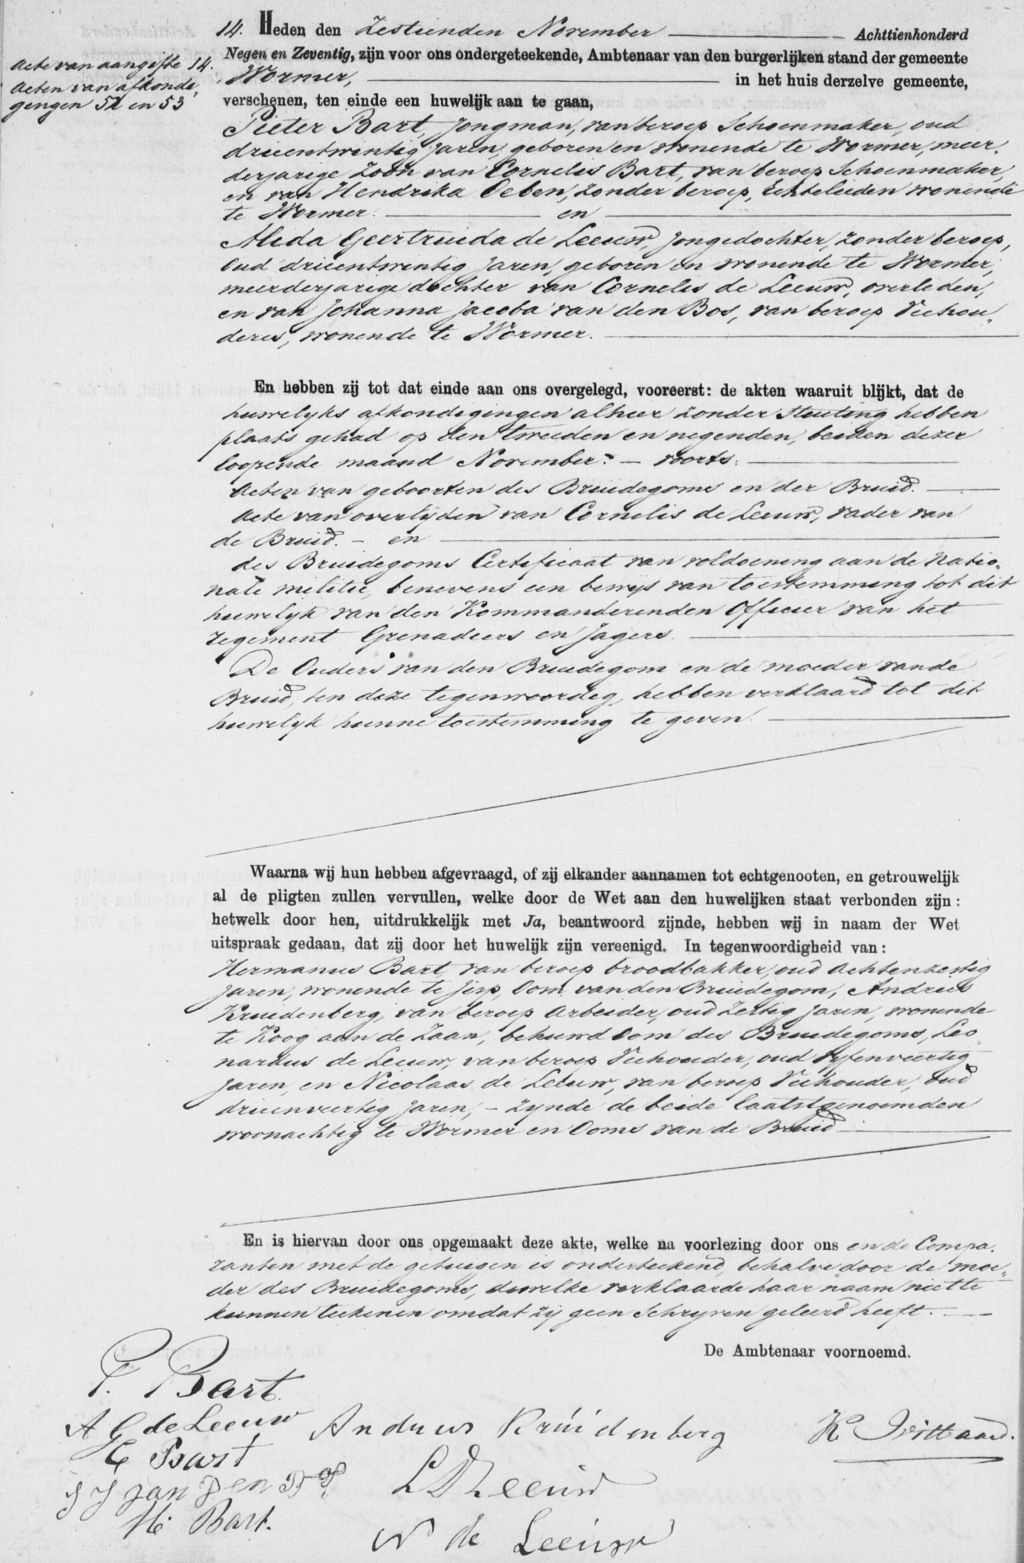 Acte van aangifte 14.
Acten van afkondi-
gingen 52 en 53
14. Heden den Zestienden November Achttienhonderd
Negen en Zeventig, zijn voor ons ondergeteekende, Ambtenaar van den burgerlijken stand der gemeente
Wormer, in het huis derzelve gemeente,
verschenen, ten einde een huwelijk aan te gaan,
Pieter Bart, jongman, van beroep Schoenmaker, oud
drieentwintig jaren, geboren en wonende te Wormer, meer-
derjarige Zoon van Cornelis Bart, van beroep Schoenmaker,
en van Hendrika Oeben, zonder beroep, Echtelieden wonende
te Wormer. en
Alida Geertruida de Leeuw, jongedochter, zonder beroep,
Oud drieentwintig jaren, geboren en wonende te Wormer,
meerderjarige dochter van Cornelis de Leeuw, overleden,
en van Johanna Jacoba van den Bos, van beroep Veehou-
deres, wonende te Wormer.
En hebben zij tot dat einde aan ons overgelegd, vooreerst: de akten waaruit blijkt, dat de
huwelijks afkondigingen alhier zonder Stuiting hebben
plaats gehad op den tweeden en negenden, beiden dezer
loopende maand November. - voorts:
Acten van geboorten des Bruidegoms en der Bruid.
Acte van overlijden van Cornelis de Leeuw, vader van
de Bruid. - en
des Bruidegoms Certificaat van voldoening aan de Natio-
nale militie, benevens een bewijs van toestemming tot dit
huwelijk van den Kommanderenden Officier van het
regement Grenadiers en Jagers.
De Ouders van den Bruidegom en de moeder van de
Bruid, ten deze tegenwoordig, hebben verklaard tot dit
huwelijk hunne toestemming te geven.
Waarna wij hun hebben afgevraagd, of zij elkander aannamen tot echtgenooten, en getrouwelijk
al de pligten zullen vervullen, welke door de Wet aan den huwelijken staat verbonden zijn:
hetwelk door hen, uitdrukkelijk met Ja, beantwoord zijnde, hebben wij in naam der Wet
uitspraak gedaan, dat zij door het huwelijk zijn vereenigd. In tegenwoordigheid van:
Hermanus Bart, van beroep broodbakker, oud Achtenzestig
jaren, wonende te Jisp, Oom van den Bruidegom, Andries
Kruidenberg, van beroep Arbeider, oud Zestig jaren, wonende
te Koog aan de Zaan, behuwd Oom des Bruidegoms, Leo-
nardus de Leeuw, van beroep Veehouder, oud vyfenveertig
jaren, en Nicolaas de Leeuw, van beroep Veehouder, oud
drieenveertig jaren, - zynde de beide laatstgenoemden
woonachtig te Wormer en Ooms van de Bruid
En is hiervan door ons opgemaakt deze akte, welke na voorlezing door ons en de Compa-
ranten met de getuigen is onderteekend, behalve door de moe-
der des Bruidegoms, dewelke verklaarde haar naam niet te
kunnen teekenen omdat zij geen Schryven geleerd heeft.
De Ambtenaar voornoemd.
P. Bart.
A G de Leeuw Andries Kruidenberg
C Bart
J J van Den Bos L D Leeuw
H. Bart.
N de Leeuw